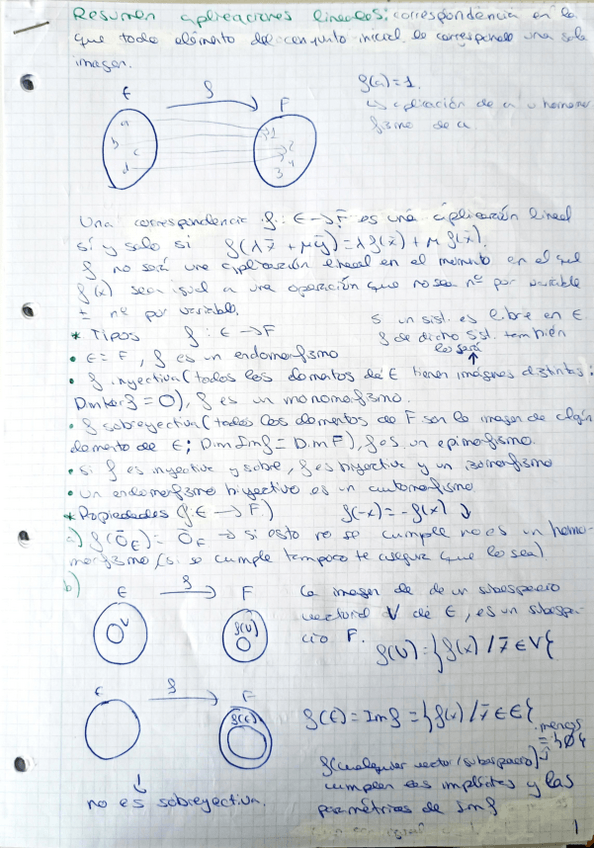 Resumen aplicaciones lineales: correspondencia en la
que todo elemento del conjunto inicial le corresponde una sola
imagen.
E f F
a
b
c
d
1
2
4
3
f(a)=1.
es aplicación de a u homomor
fismo de a
Una correspondencia f: E→F es una aplicación lineal
sí y solo si f(λx̄ + μȳ)=λf(x̄)+ μ f(x̄).
f no será una aplicación lineal en el momento en el que
f(x) sea igual a una operación que no sea nº por variable
± nº por variable.
* Tipos f: E→F
si un sist. es libre en E
f de dicho sist. también
lo será
• E=F, f es un endomorfismo
• f inyectiva (todos los elementos de E tienen imágenes distintas:
Dim ker f = 0), f es un monomorfismo.
• f sobreyectiva (todos los elementos de F son la imagen de algún
elemento de E; Dim Im f = Dim F), f es un epimorfismo.
• si f es inyectiva y sobre, f es biyectiva y un isomorfismo
• un endomorfismo biyectivo es un automorfismo
* Propiedades (f: E→F) f(-x)=-f(x) ↓
a) f(0̄E)= 0̄F → si esto no se cumple no es un homo-
morfismo (si se cumple tampoco te asegura que lo sea)
b)
E f F
V f(V)
La imagen de de un subespacio
vectorial V de E, es un subespa-
cio F.
f(V)=}f(x) / x̄ ∈ V{
E f F
f(E)
f(E)= Im f = }f(x) / x̄ ∈ E{
menos
f(cualquier vector/subespacio)
cumplen las implícitas y las
paramétricas de Im f
no es sobreyectiva.
1